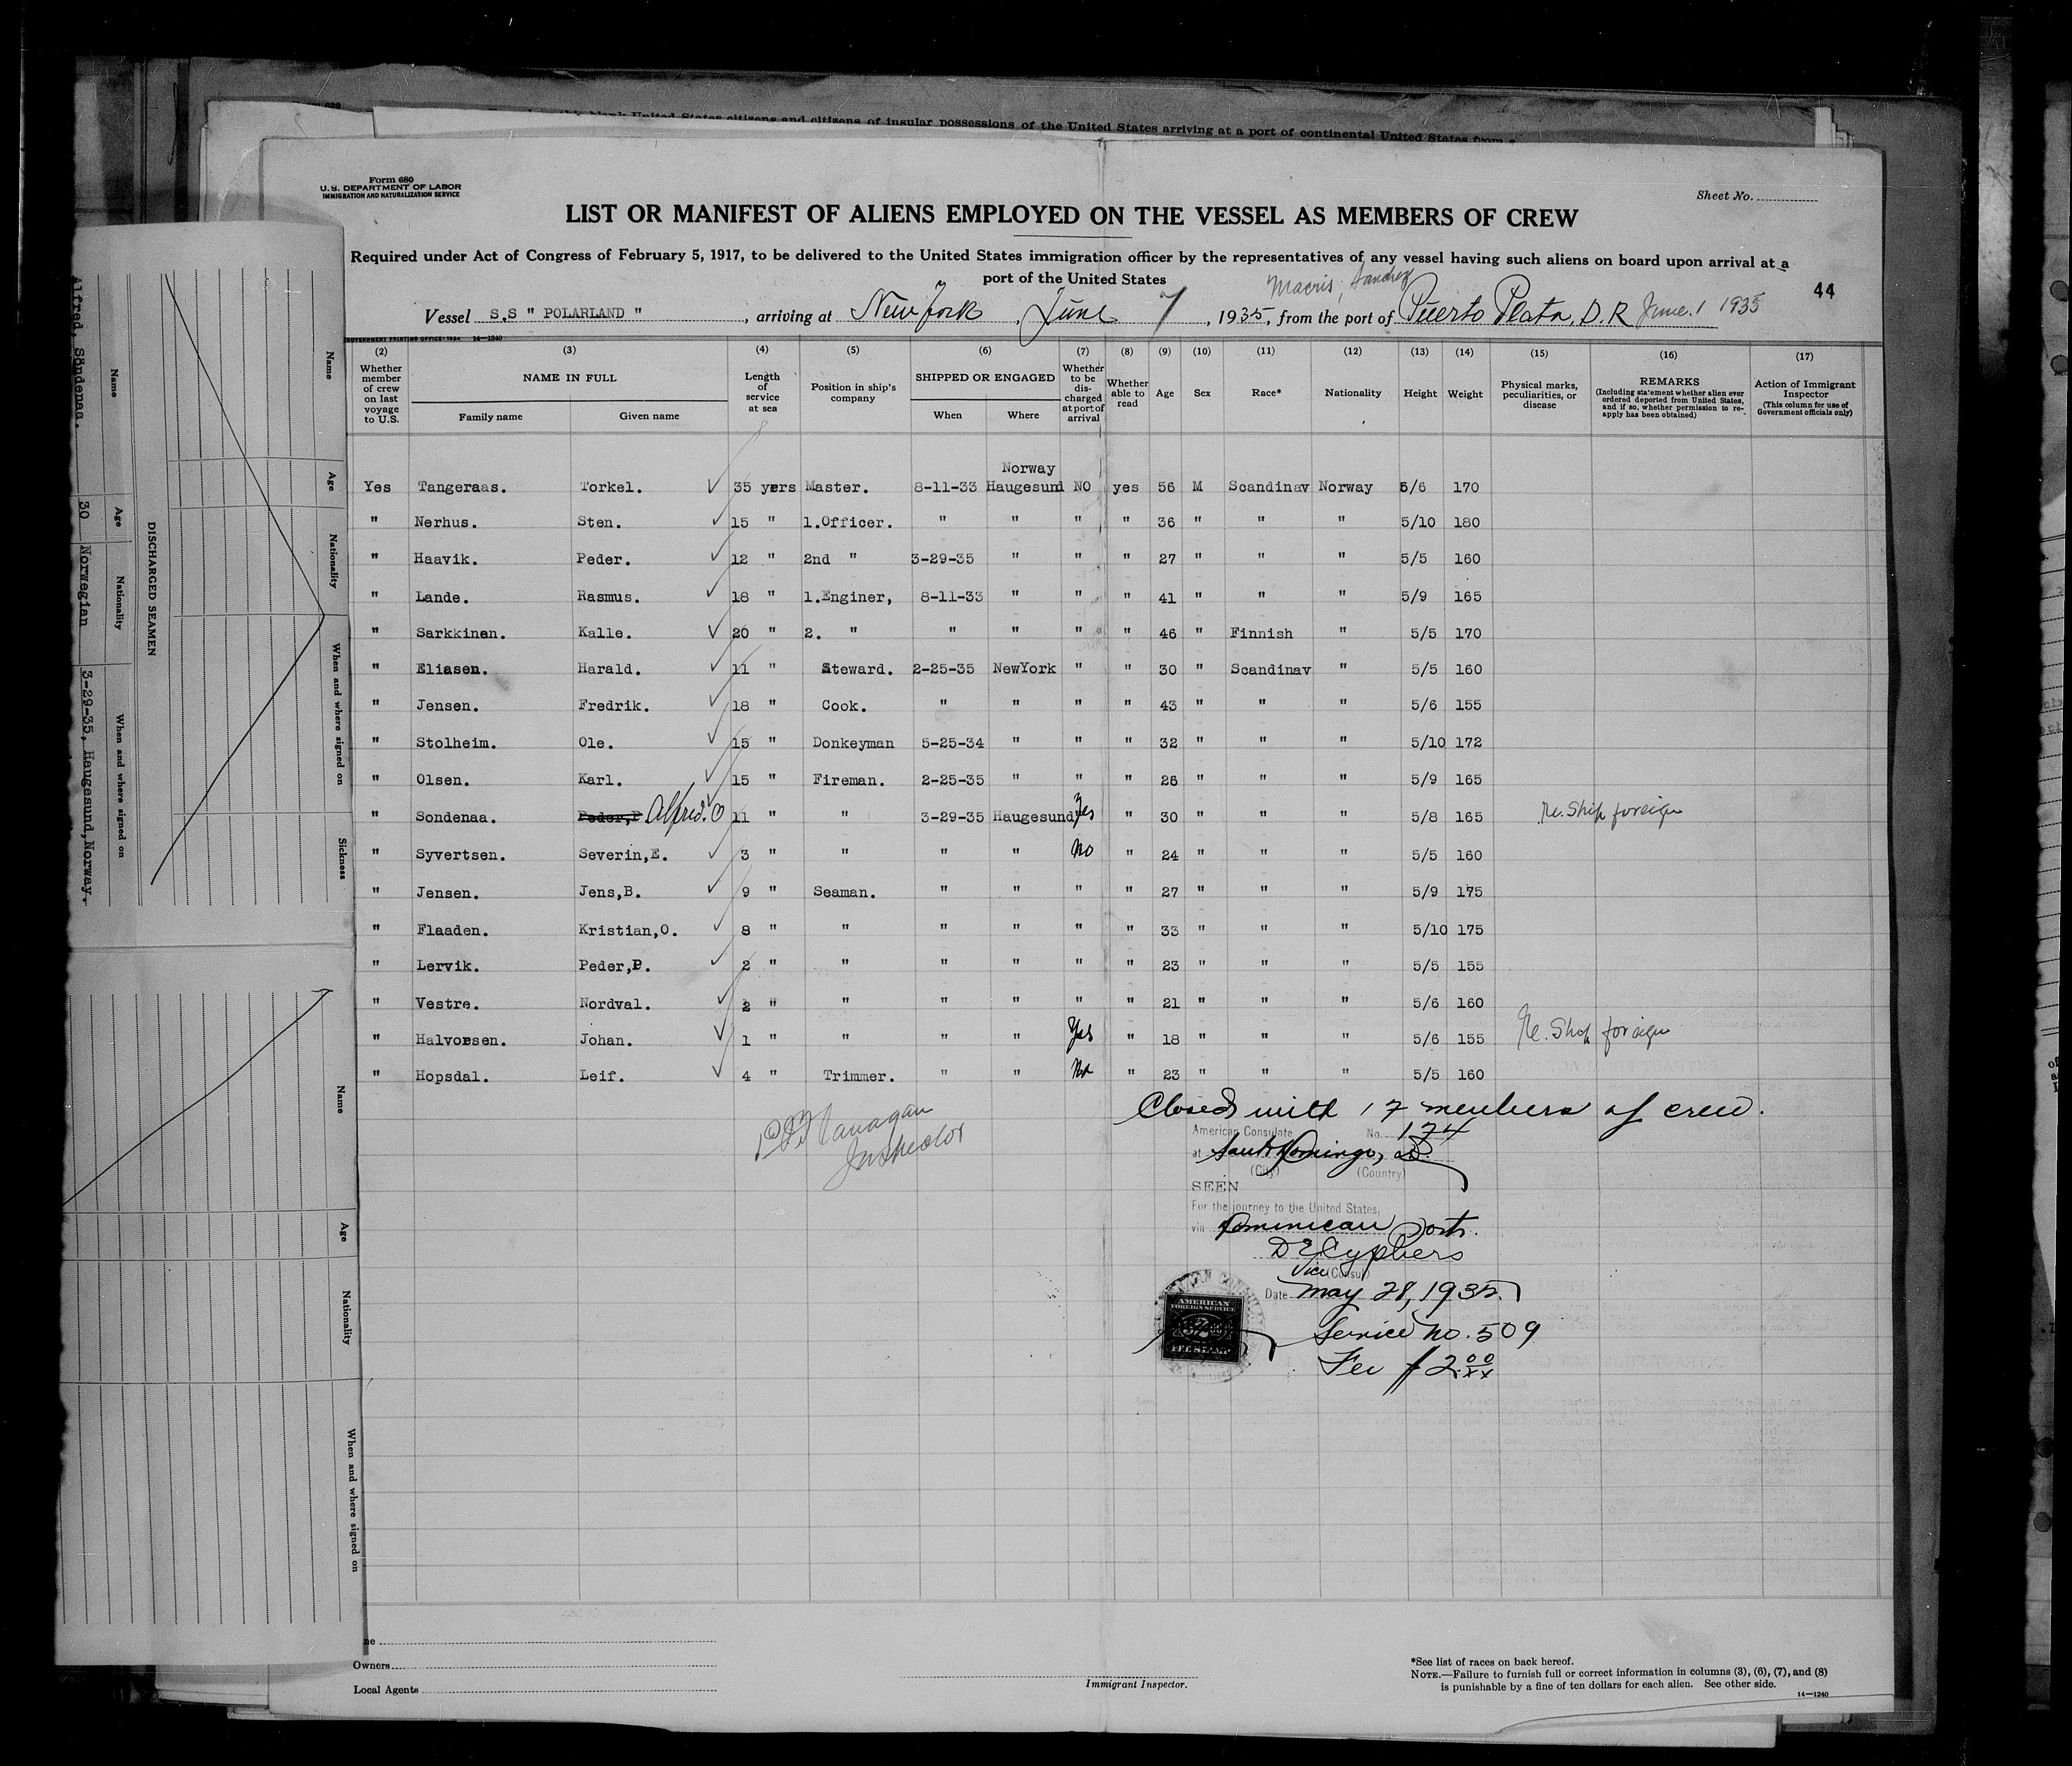 blank United States citizens and citizens of insular possessions of the United States arriving at a port of continental United States from a
Form 680
U.S. DEPARTMENT OF LABOR
IMMIGRATION AND NATURALIZATION SERVICE
Sheet No.
LIST OR MANIFEST OF ALIENS EMPLOYED ON THE VESSEL AS MEMBERS OF CREW
Required under Act of Congress of February 5, 1917, to be delivered to the United States immigration officer by the representatives of any vessel having such aliens on board upon arrival at a
port of the United States
Macoris, Sanchez
44
Vessel S.S " POLARLAND " , arriving at New York , June 7 , 1935, from the port of Puerto Plata, D.R June. 1 1935
GOVERNMENT PRINTING OFFICE: 1934 14—1240
(2) (3) (4) (5) (6) (7) (8) (9) (10) (11) (12) (13) (14) (15) (16) (17)
Whether member of crew on last voyage to U.S.
NAME IN FULL
Family name
Given name
Length of service at sea
Position in ship's company
SHIPPED OR ENGAGED
When
Where
Whether to be discharged at port of arrival
Whether able to read
Age
Sex
Race*
Nationality
Height
Weight
Physical marks, peculiarities, or disease
REMARKS
(Including statement whether alien ever ordered deported from United States, and if so, whether permission to re-apply has been obtained)
Action of Immigrant Inspector
(This column for use of Government officials only)
Norway
Yes Tangeraas. Torkel. ✓ 35 yers Master. 8-11-33 Haugesund NO yes 56 M Scandinav Norway 5/6 170
" Nerhus. Sten. ✓ 15 " 1.Officer. " " " " 36 " " " 5/10 180
" Haavik. Peder. ✓ 12 " 2nd " 3-29-35 " " " 27 " " " 5/5 160
" Lande. Rasmus. ✓ 18 " 1.Enginer, 8-11-33 " " " 41 " " " 5/9 165
" Sarkkinen. Kalle. ✓ 20 " 2. " " " " " 46 " Finnish " 5/5 170
" Eliasen. Harald. ✓ 11 " Steward. 2-25-35 NewYork " " 30 " Scandinav " 5/5 160
" Jensen. Fredrik. ✓ 18 " Cook. " " " " 43 " " " 5/6 155
" Stolheim. Ole. ✓ 15 " Donkeyman 5-25-34 " " " 32 " " " 5/10 172
" Olsen. Karl. ✓ 15 " Fireman. 2-25-35 " " " 26 " " " 5/9 165
" Sondenaa. Peder,P Alfred. O ✓ 11 " " 3-29-35 Haugesund Yes " 30 " " " 5/8 165 Re. Ship foreign
" Syvertsen. Severin,E. ✓ 3 " " " " No " 24 " " " 5/5 160
" Jensen. Jens,B. ✓ 9 " Seaman. " " " " 27 " " " 5/9 175
" Flaaden. Kristian,O. ✓ 8 " " " " " " 33 " " " 5/10 175
" Lervik. Peder,P. ✓ 2 " " " " " " 23 " " " 5/5 155
" Vestre. Nordval. ✓ 2 " " " " " " 21 " " " 5/6 160
" Halvorsen. Johan. ✓ 1 " " " " Yes " 18 " " " 5/6 155 Re. Ship foreign
" Hopsdal. Leif. ✓ 4 " Trimmer. " " No " 23 " " " 5/5 160
Closed with 17 members of crew.
Inspector
American Consulate No. 174
at Santo Domingo, D.R.
(City) (Country)
SEEN
For the journey to the United States,
via Dominican Ports.
D E Cyphers
Vice (Consul)
Date May 28, 1935.
AMERICAN
FOREIGN SERVICE
FEE STAMP
Service No. 509
Fee $ 2.00
Owners
Local Agents
Immigrant Inspector.
*See list of races on back hereof.
NOTE.—Failure to furnish full or correct information in columns (3), (6), (7), and (8)
is punishable by a fine of ten dollars for each alien. See other side.
14—1240
DISCHARGED SEAMEN
Name Age Nationality When and where signed on
Alfred. Söndenaa. 30 Norwegian 3-29-35, Haugesund,Norway.
Name Age Nationality When and where signed on Sickness
Name Age Nationality When and where signed on